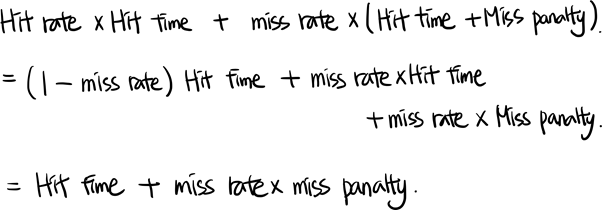 Hit rate × Hit time + miss rate × (Hit time + Miss panalty).
= (1 − miss rate) Hit time + miss rate × Hit time
+ miss rate × Miss panalty.
= Hit time + miss rate × miss panalty.